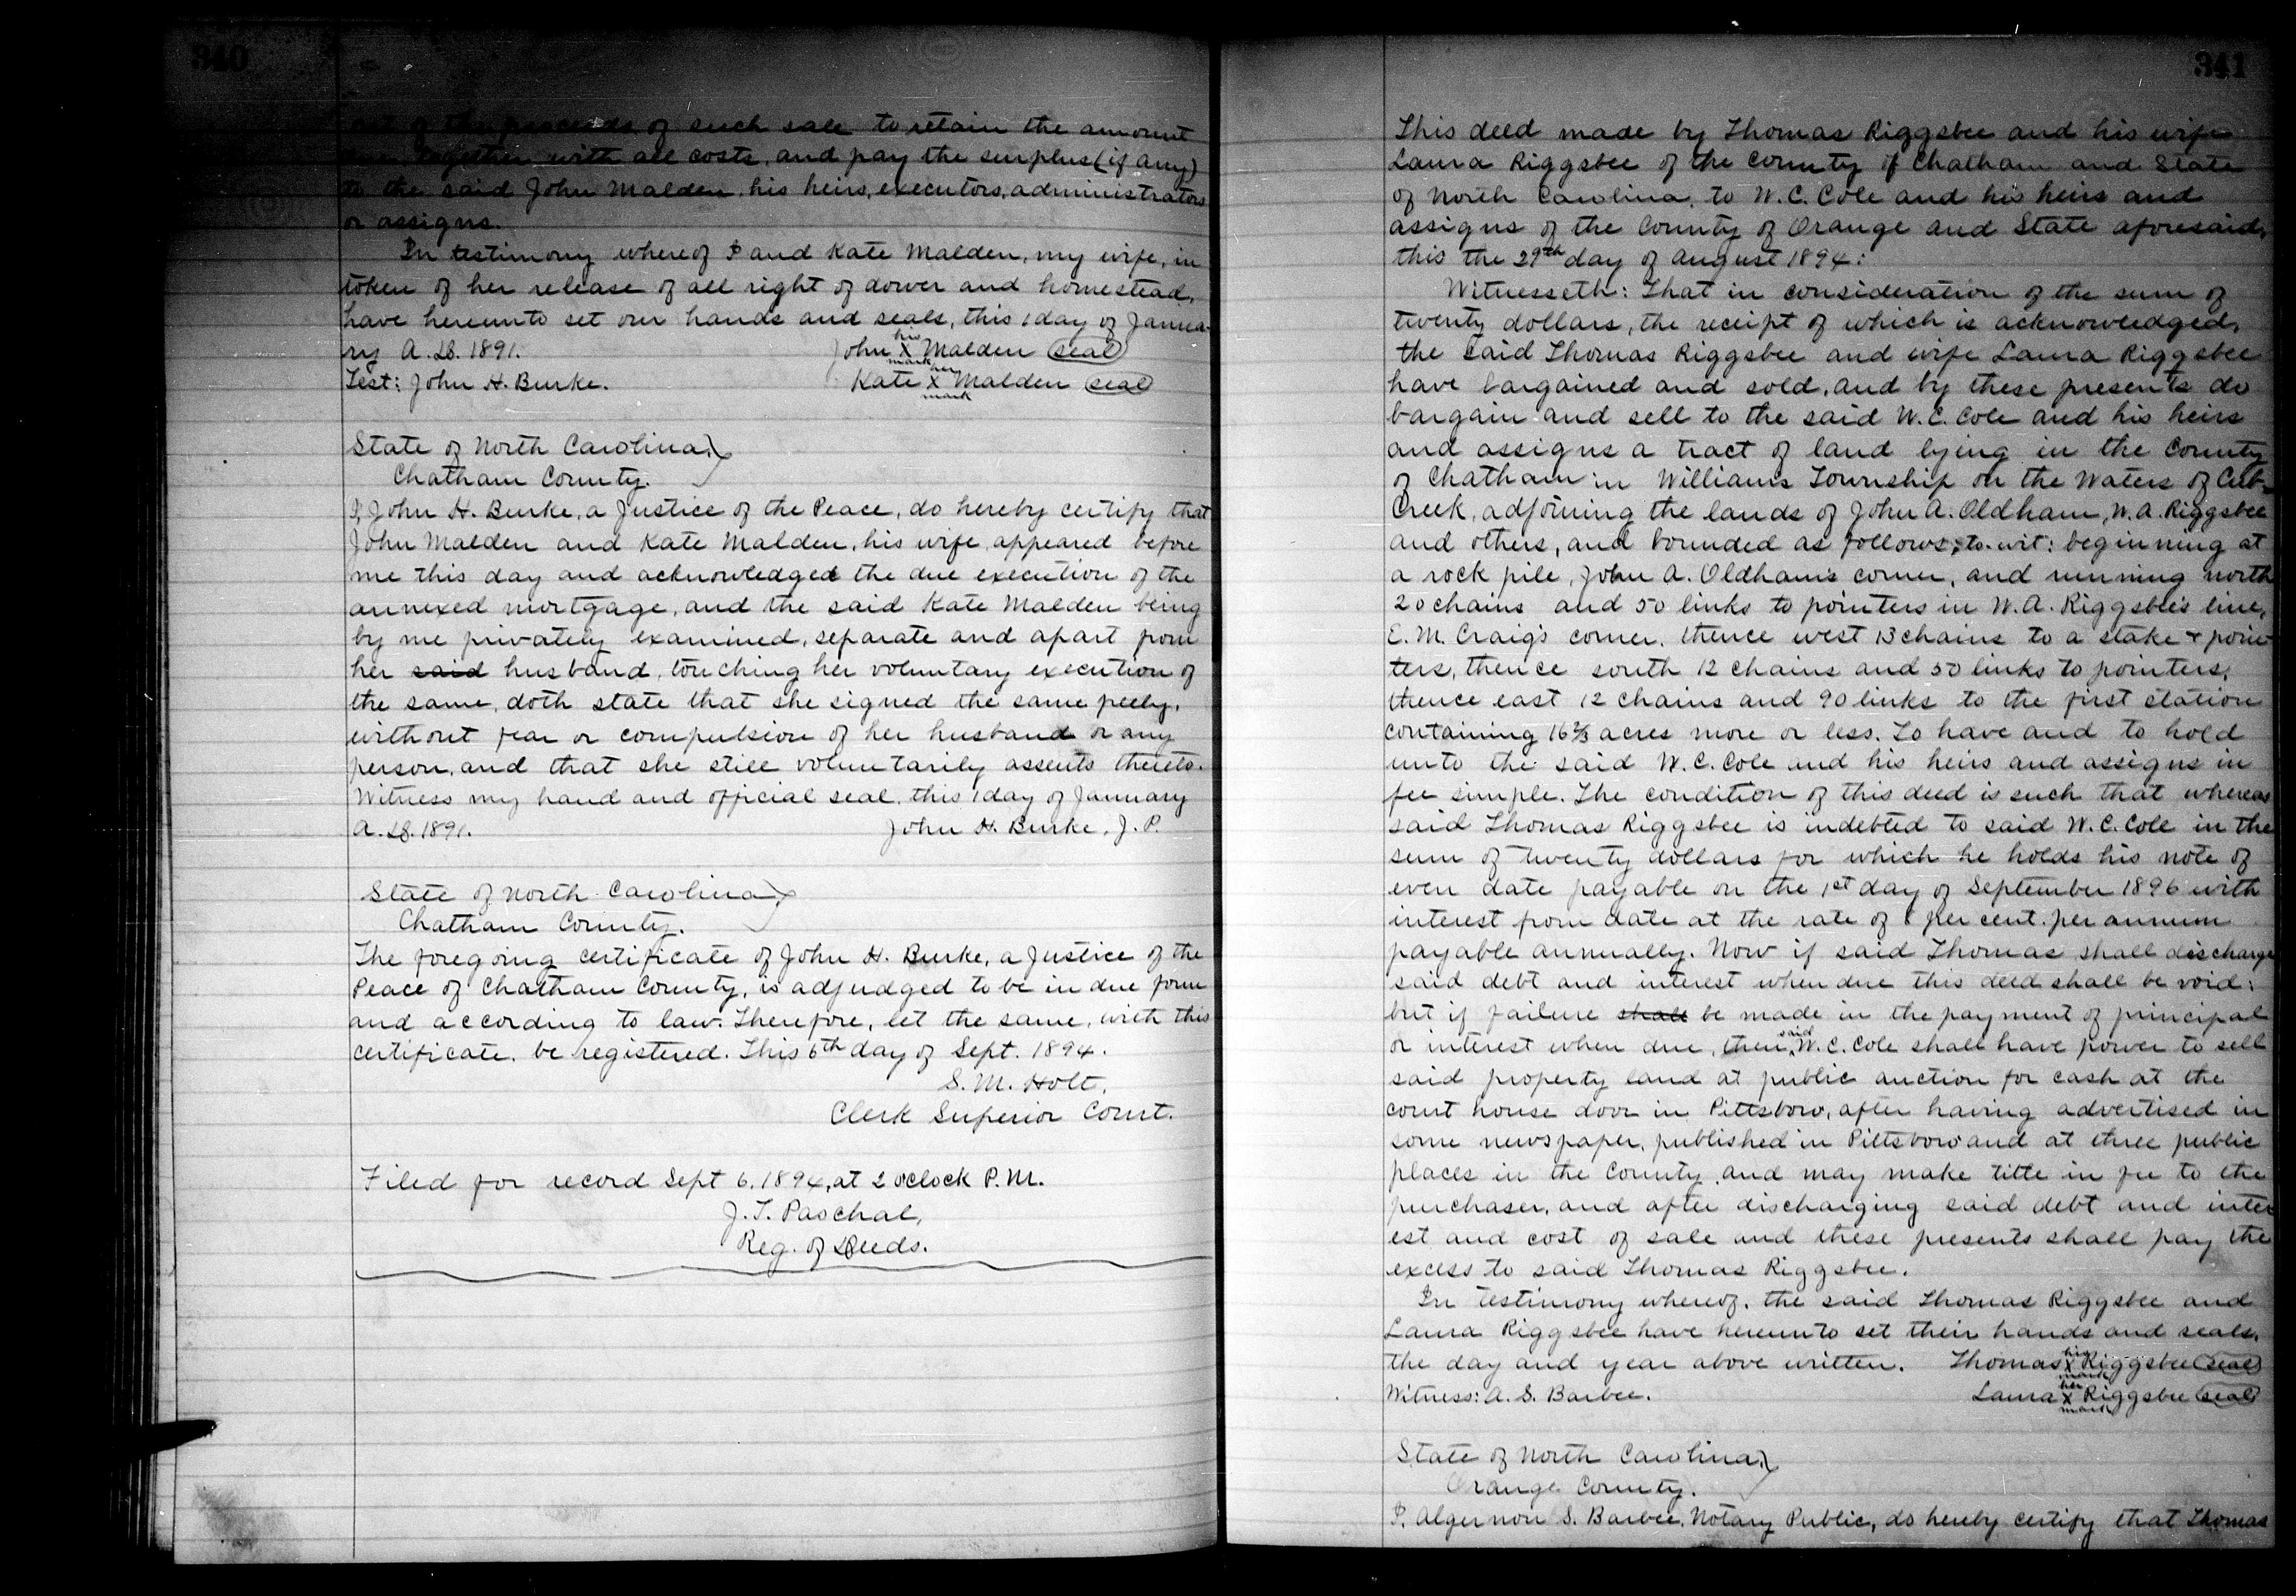 340
of the proceeds of such sale to retain the amount
together with all costs, and pay the surplus (if any)
to the said John Malden, his heirs, executors, administrators
or assigns.
In testimony whereof I and Kate Malden, my wife, in
token of her release of all right of dower and homestead,
have hereunto set our hands and seals, this 1 day of Janua-
ry A.D. 1891. John his X mark Malden (seal)
Test: John H. Burke. Kate her X mark Malden (seal)
State of North Carolina,
Chatham County.
I, John H. Burke, a Justice of the Peace, do hereby certify that
John Malden and Kate Malden, his wife, appeared before
me this day and acknowledged the due execution of the
annexed mortgage, and the said Kate Malden being
by me privately examined, separate and apart from
her said husband, touching her voluntary execution of
the same, doth state that she signed the same freely,
without fear or compulsion of her husband or any
person, and that she still voluntarily assents thereto.
Witness my hand and official seal, this 1 day of January
A.D. 1891. John H. Burke, J.P.
State of North Carolina,
Chatham County.
The foregoing certificate of John H. Burke, a Justice of the
Peace of Chatham County, is adjudged to be in due form
and according to law. Therefore, let the same, with this
certificate, be registered. This 6th day of Sept. 1894.
S. M. Holt,
Clerk Superior Court.
Filed for record Sept 6, 1894, at 2 oclock P.M.
J. T. Paschal,
Reg. of Deeds.
341
This deed made by Thomas Riggsbee and his wife
Laura Riggsbee of the County of Chatham and State
of North Carolina, to W. C. Cole and his heirs and
assigns of the County of Orange and State aforesaid,
this the 29th day of August 1894:
Witnesseth: That in consideration of the sum of
twenty dollars, the receipt of which is acknowledged,
the said Thomas Riggsbee and wife Laura Riggsbee
have bargained and sold, and by these presents do
bargain and sell to the said W. C. Cole and his heirs
and assigns a tract of land lying in the County
of Chatham in Williams Township on the Waters of Cub-
Creek, adjoining the lands of John A. Oldham, W. A. Riggsbee
and others, and bounded as follows; to-wit: beginning at
a rock pile, John A. Oldham's corner, and running north
20 chains and 50 links to pointers in W. A. Riggsbee's line,
E. M. Craig's corner, thence west 13 chains to a stake & poin-
ters, thence south 12 chains and 50 links to pointers,
thence east 12 chains and 90 links to the first station
containing 16⅔ acres more or less. To have and to hold
unto the said W. C. Cole and his heirs and assigns in
fee simple. The condition of this deed is such that whereas
said Thomas Riggsbee is indebted to said W. C. Cole in the
sum of twenty dollars for which he holds his note of
even date payable on the 1st day of September 1896 with
interest from date at the rate of 8 per cent. per annum
payable annually. Now if said Thomas shall discharge
said debt and interest when due this deed shall be void:
but if failure shall be made in the payment of principal
or interest when due, then said W. C. Cole shall have power to sell
said property land at public auction for cash at the
court house door in Pittsboro, after having advertised in
some newspaper, published in Pittsboro and at three public
places in the County, and may make title in fee to the
purchaser, and after discharging said debt and inter
est and cost of sale and these presents shall pay the
excess to said Thomas Riggsbee.
In testimony whereof, the said Thomas Riggsbee and
Laura Riggsbee have hereunto set their hands and seals,
the day and year above written. Thomas his X mark Riggsbee (seal)
Witness: A. S. Barbee. Laura her X mark Riggsbee (seal)
State of North Carolina,
Orange County.
I, Algernon S. Barbee, Notary Public, do hereby certify that Thomas